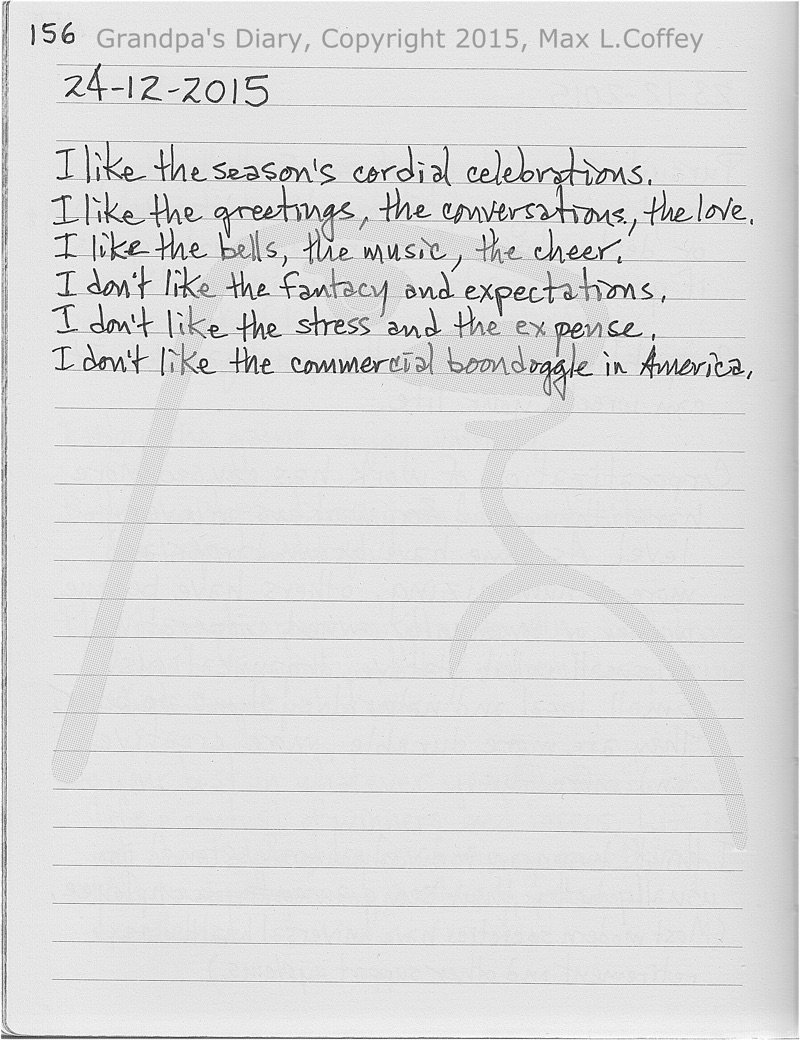 156 Grandpa's Diary, Copyright 2015, Max L.Coffey
24-12-2015
I like the season's cordial celebrations.
I like the greetings, the conversations, the love.
I like the bells, the music, the cheer.
I don't like the fantacy and expectations.
I don't like the stress and the expense.
I don't like the commercial boondoggle in America.